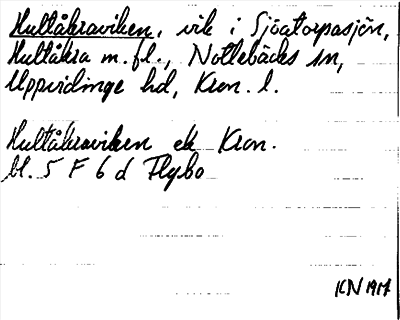 Hultåkraviken, vik i Sjöatorpasjön,
Hultåkra m.fl., Nottebäcks sn,
Uppvidinge hd, Kron. l.
Hultåkraviken ek Kron.
bl. 5 F 6 d Flybo
KN 1917